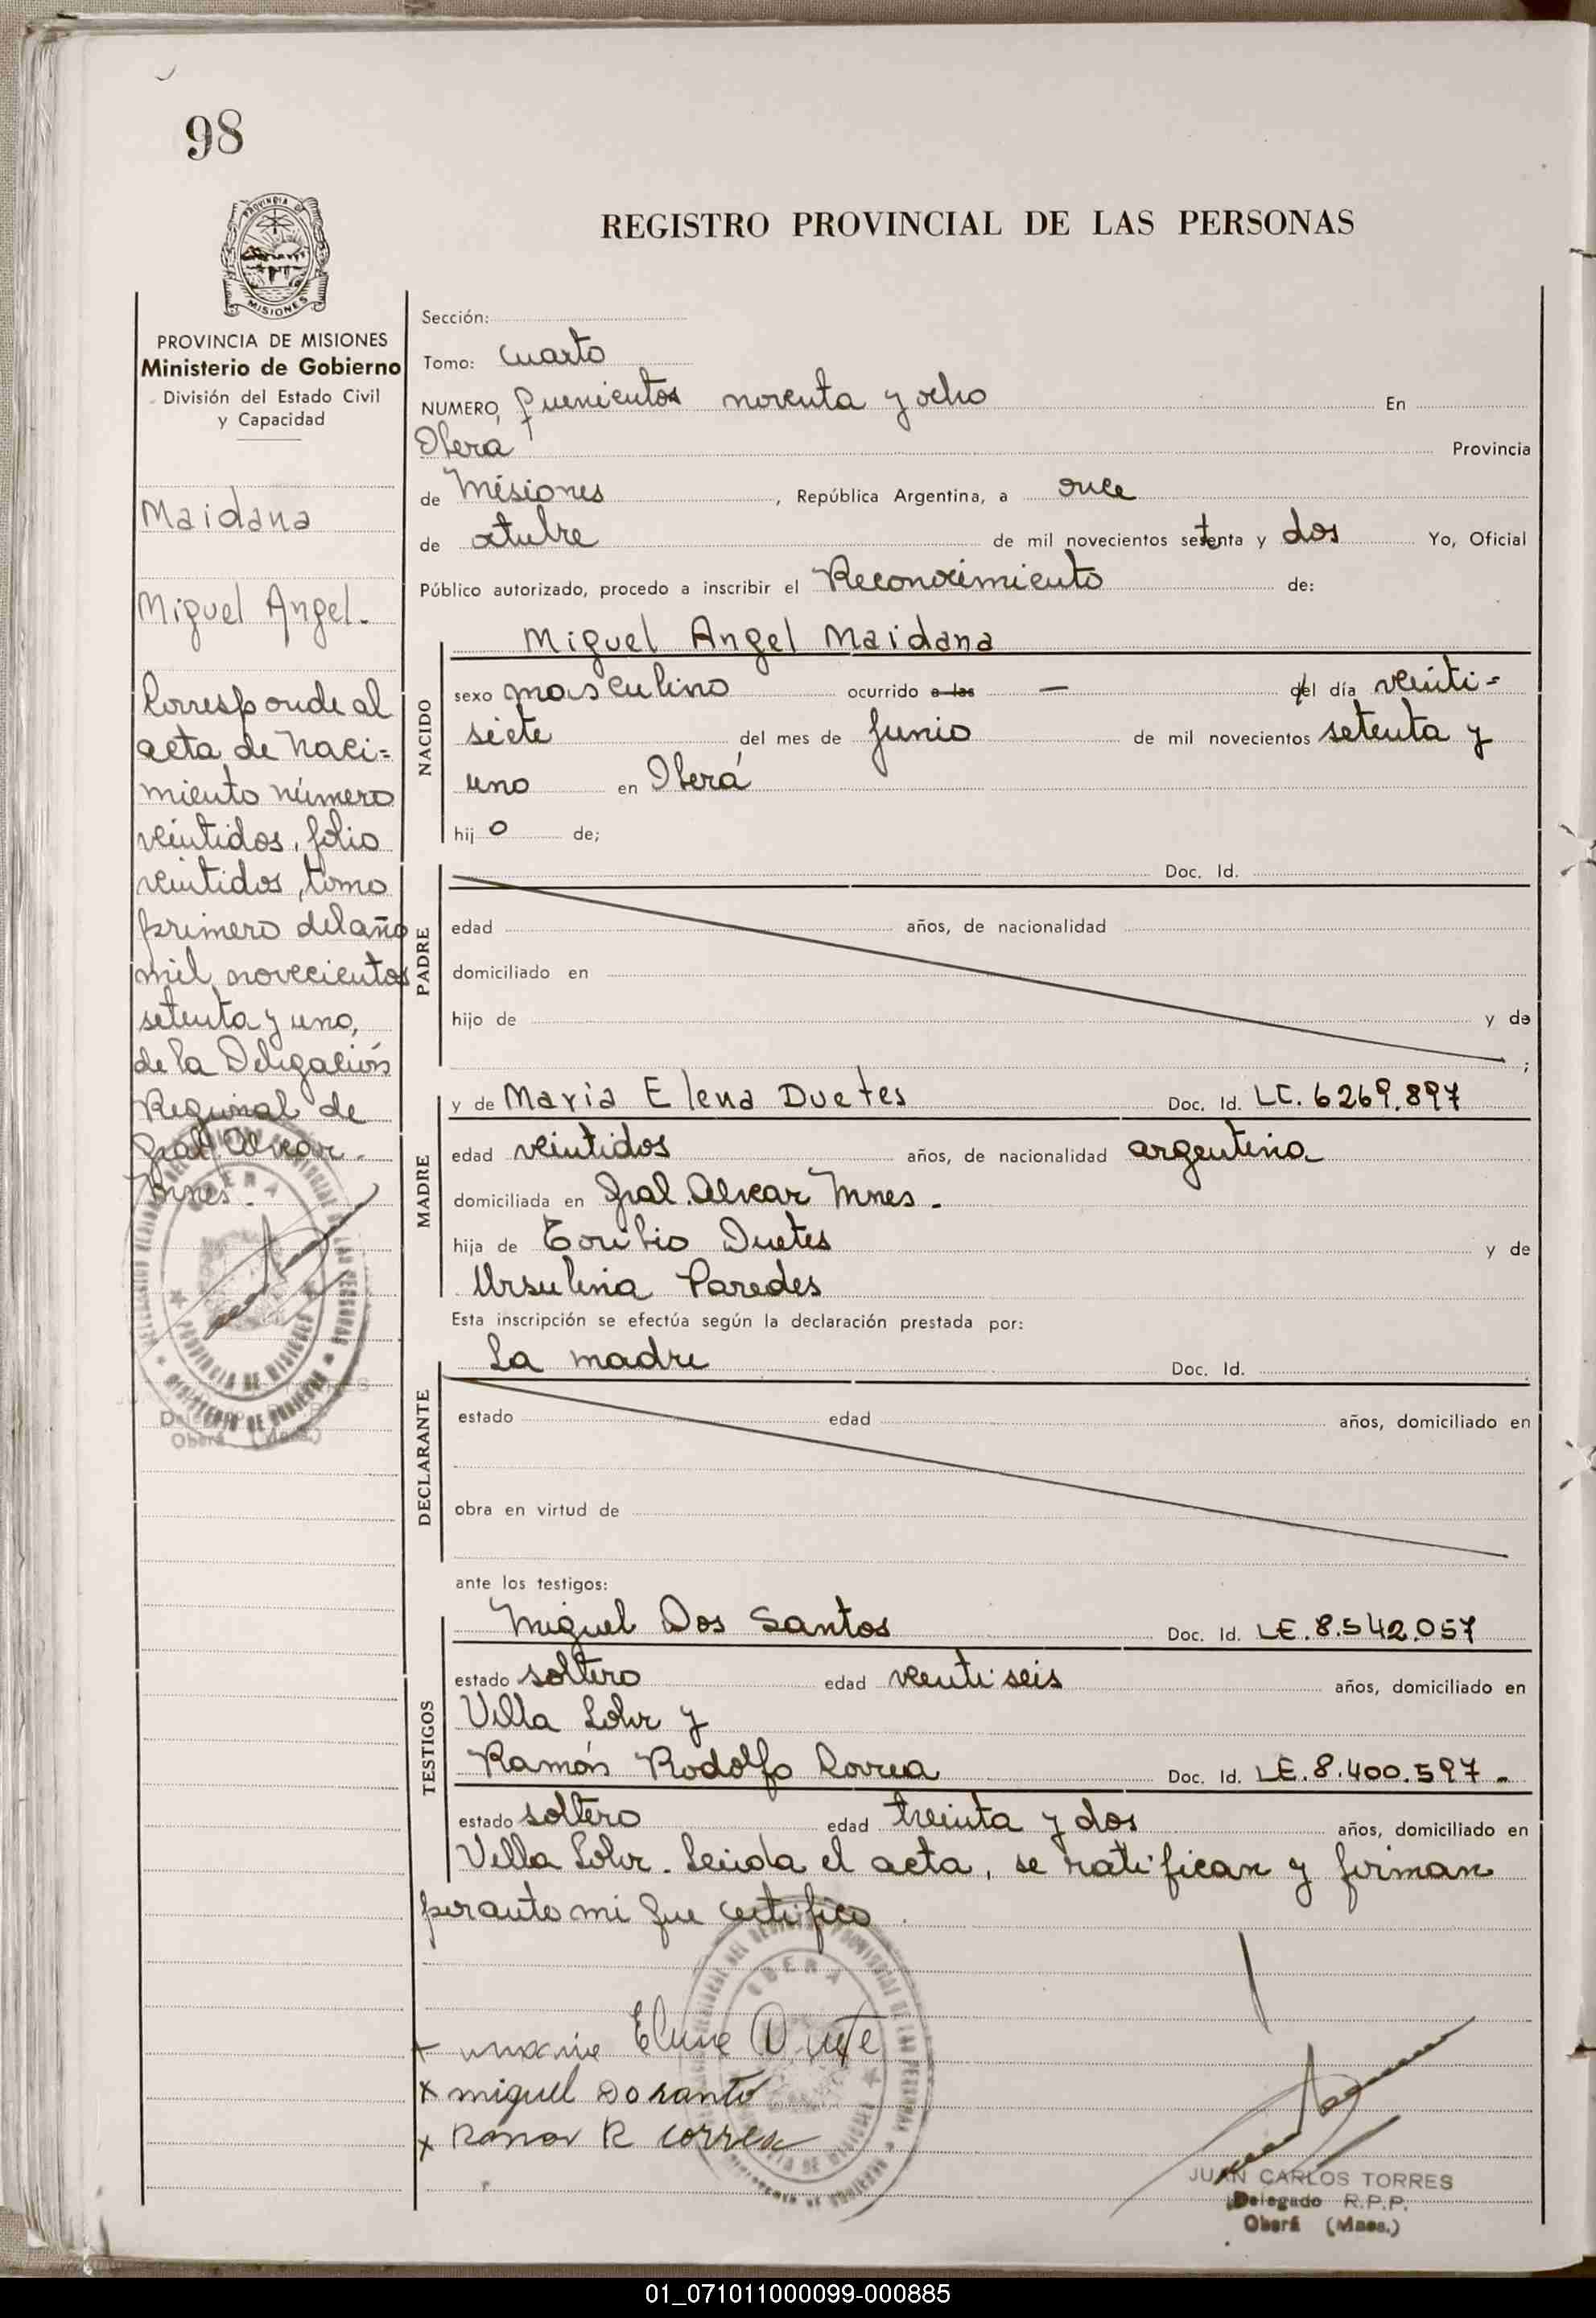 98
PROVINCIA DE
MISIONES
REGISTRO PROVINCIAL DE LAS PERSONAS
PROVINCIA DE MISIONES
Ministerio de Gobierno
División del Estado Civil
y Capacidad
Maidana
Miguel Angel.
Corresponde al
acta de naci=
miento número
veintidos, folio
veintidos, tomo
primero del año
mil novecientos
setenta y uno,
de la Delegación
Regional de
Gral. Alvear
Mnes.
Sección:
Tomo: Cuarto
NUMERO, quinientos noventa y ocho En
Oberá Provincia
de Misiones , República Argentina, a once
de octubre de mil novecientos setenta y dos Yo, Oficial
Público autorizado, procedo a inscribir el Reconocimiento de:
NACIDO
Miguel Angel Maidana
sexo masculino ocurrido a las — del día veinti=
siete del mes de Junio de mil novecientos setenta y
uno en Oberá
hij o de;
PADRE
Doc. Id.
edad años, de nacionalidad
domiciliado en
hijo de y de
;
MADRE
y de Maria Elena Duetes Doc. Id. LC. 6269.897
edad veintidos años, de nacionalidad argentina
domiciliada en Gral. Alvear Mnes.
hija de Toribio Duetes y de
Ursulina Paredes
Esta inscripción se efectúa según la declaración prestada por:
DECLARANTE
La madre Doc. Id.
estado edad años, domiciliado en
obra en virtud de
ante los testigos:
TESTIGOS
Miguel Dos Santos Doc. Id. LE. 8.542.057
estado soltero edad veintiseis años, domiciliado en
Villa Lohr y
Ramón Rodolfo Correa Doc. Id. LE. 8.400.597 -
estado soltero edad treinta y dos años, domiciliado en
Villa Lohr. Leida el acta, se ratifican y firman
por ante mi que certifico.
OBERA
x Elena
x miguel Do santo
x Ramon R correa
JUAN CARLOS TORRES
Delegado R.P.P.
Oberá (Mnes.)
OBERA
PROVINCIA DE MISIONES
MINISTERIO DE GOBIERNO
Oberá (Mnes.)
01_071011000099-000885